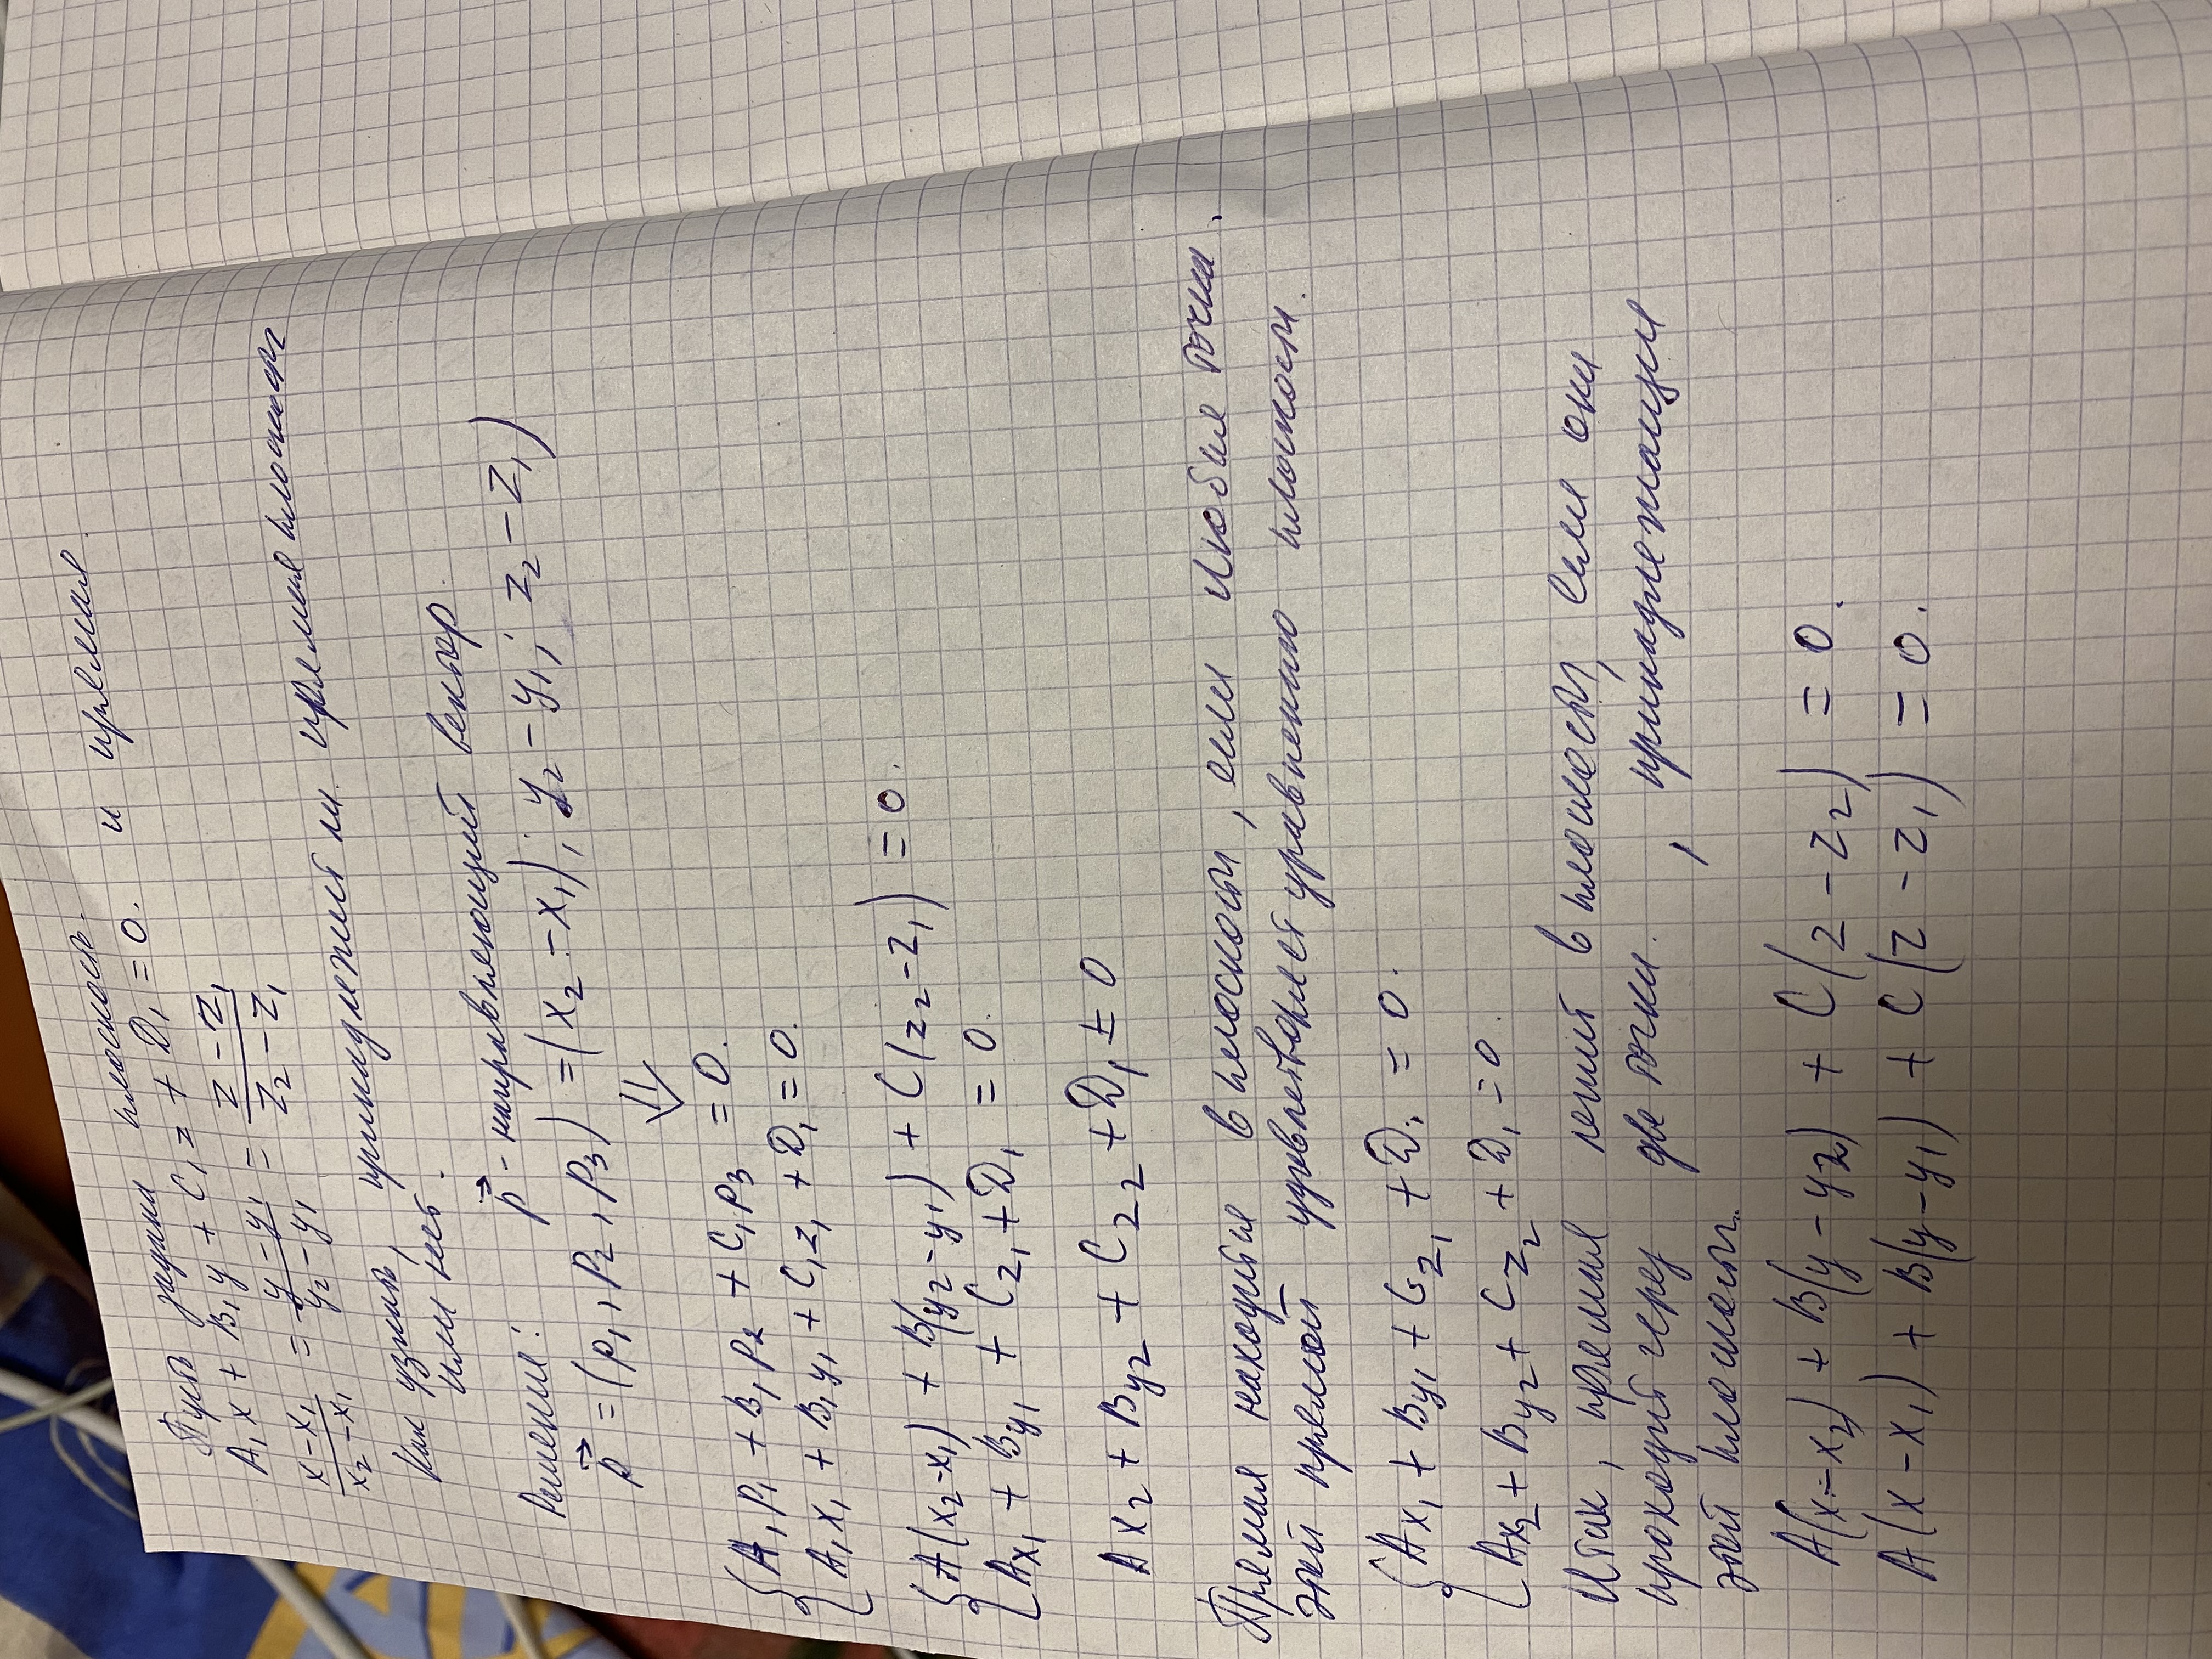 Пусть задана плоскость.
A₁x + B₁y + C₁z + D₁ = 0. и прямая.
(x – x₁)/(x₂ – x₁) = (y – y₁)/(y₂ – y₁) = (z – z₁)/(z₂ – z₁)
Как узнать, принадлежит ли прямая плоскости
или нет.
Решение: p⃗ - направляющий вектор.
p⃗ = (p₁, p₂, p₃) = (x₂ – x₁); y₂ – y₁; z₂ – z₁)
⇓
{ A₁p₁ + B₁p₂ + C₁p₃ = 0.
A₁x₁ + B₁y₁ + C₁z₁ + D₁ = 0.
{ A(x₂ – x₁) + B(y₂ – y₁) + C(z₂ – z₁) = 0.
Ax₁ + By₁ + Cz₁ + D₁ = 0.
Ax₂ + By₂ + Cz₂ + D₁ = 0
Прямая находится в плоскости, если любая точка.
этой прямой удовлетворяет уравнению плоскости.
{ Ax₁ + By₁ + Cz₁ + D₁ = 0.
Ax₂ + By₂ + Cz₂ + D₁ = 0.
Итак, прямая лежит в плоскости, если она
проходит через две точки. , принадлежащие
этой плоскости.
A(x – x₂) + B(y – y₂) + C(z – z₂) = 0.
A(x – x₁) + B(y – y₁) + C(z – z₁) = 0.